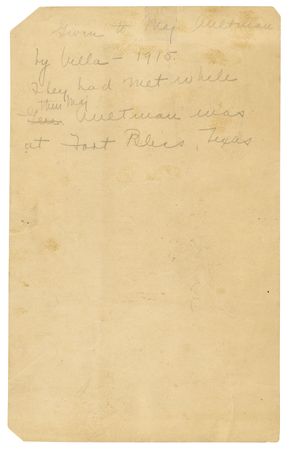 Given to Maj Aultman
by Villa - 1915.
They had met while
then Maj
Gen. Aultman was
at Fort Bliss, Texas